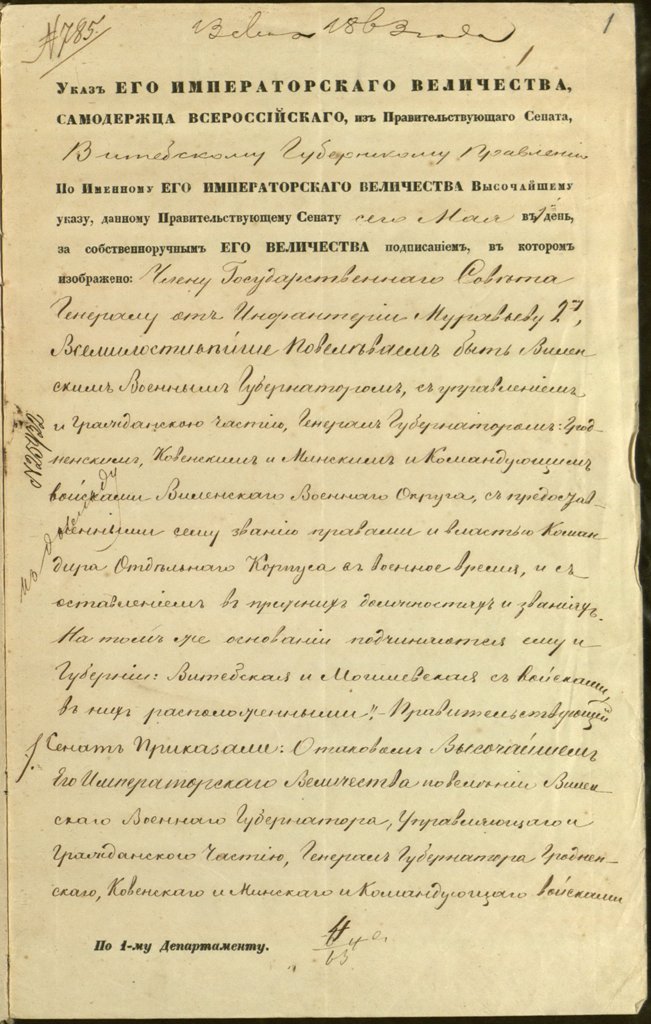 № 785.
13 Мая 1863 года
1
1
Указъ ЕГО ИМПЕРАТОРСКАГО ВЕЛИЧЕСТВА,
САМОДЕРЖЦА ВСЕРОССІЙСКАГО, изъ Правительствующаго Сената,
Витебскому Губернскому Правленію
По Именному ЕГО ИМПЕРАТОРСКАГО ВЕЛИЧЕСТВА Высочайшему
указу, данному Правительствующему Сенату сего Мая въ 1 день,
за собственноручнымъ ЕГО ВЕЛИЧЕСТВА подписаніемъ, въ которомъ
изображено: Члену Государственнаго Совѣта
Генералу отъ Инфантеріи Муравьеву 2му,
Всемилостивѣйше Повелѣваемъ быть Вилен-
скимъ Военнымъ Губернаторомъ, съ управленіемъ
и Гражданскою частію, Генералъ Губернаторомъ: Грод-
ненскимъ, Ковенскимъ и Минскимъ и Командующимъ
войсками Виленскаго Военнаго Округа, съ предостав-
леннными сему званію правами и властью Коман-
дира Отдѣльнаго Корпуса въ военное время, и съ
оставленіемъ въ прежнихъ должностяхъ и званіяхъ.
На томъ же основаніи подчиняются ему и
Губерніи: Витебская и Могилевская съ войсками,
въ нихъ расположенными". Правительствующій
Сенатъ Приказали: О таковомъ Высочайшемъ
Его Императорскаго Величества повелѣніи Вилен-
скаго Военнаго Губернатора, Управляющаго и
Гражданскою Частію, Генералъ Губернатора Гроднен-
скаго, Ковенскаго и Минскаго и Командующаго войсками
По 1-му Департаменту.